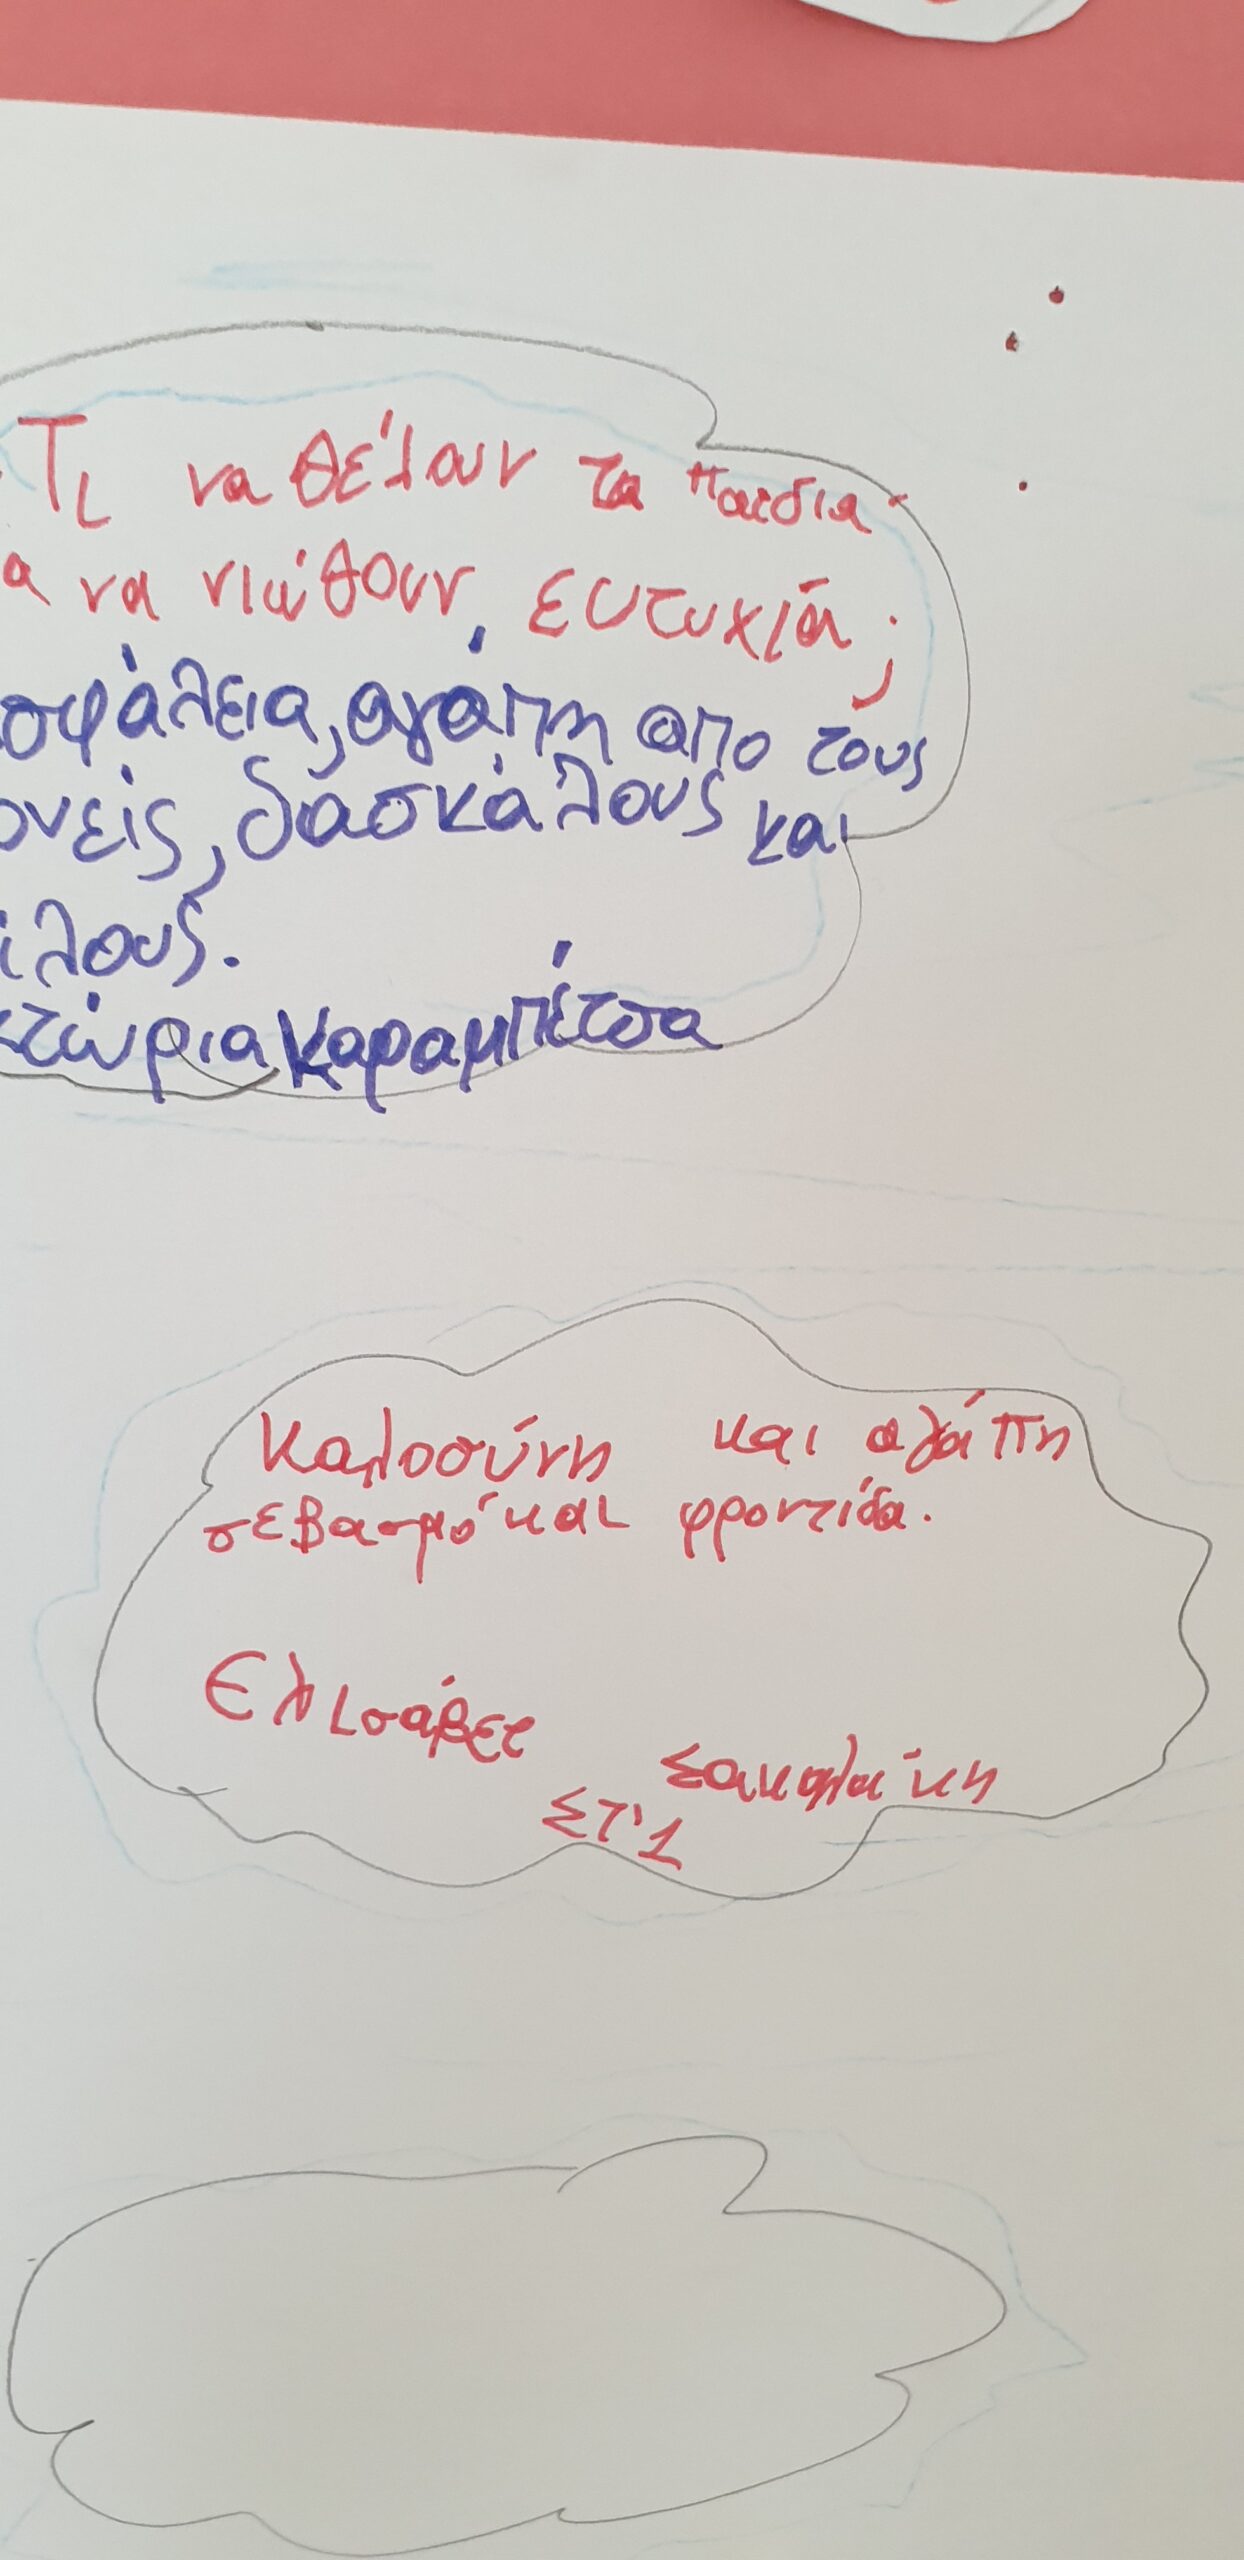 Τι να θέλουν τα παιδια
α να νιώθουν ευτυχιά;
σφάλεια, αγάπη απο τους
ονείς, δασκάλους και
ίλους.
τώρια Καραμπέτσα
Καλοσύνη και αγάπη
σεβασμό και φροντίδα.
Ελισάβετ
Σακαλάκη
ΣΤ'1